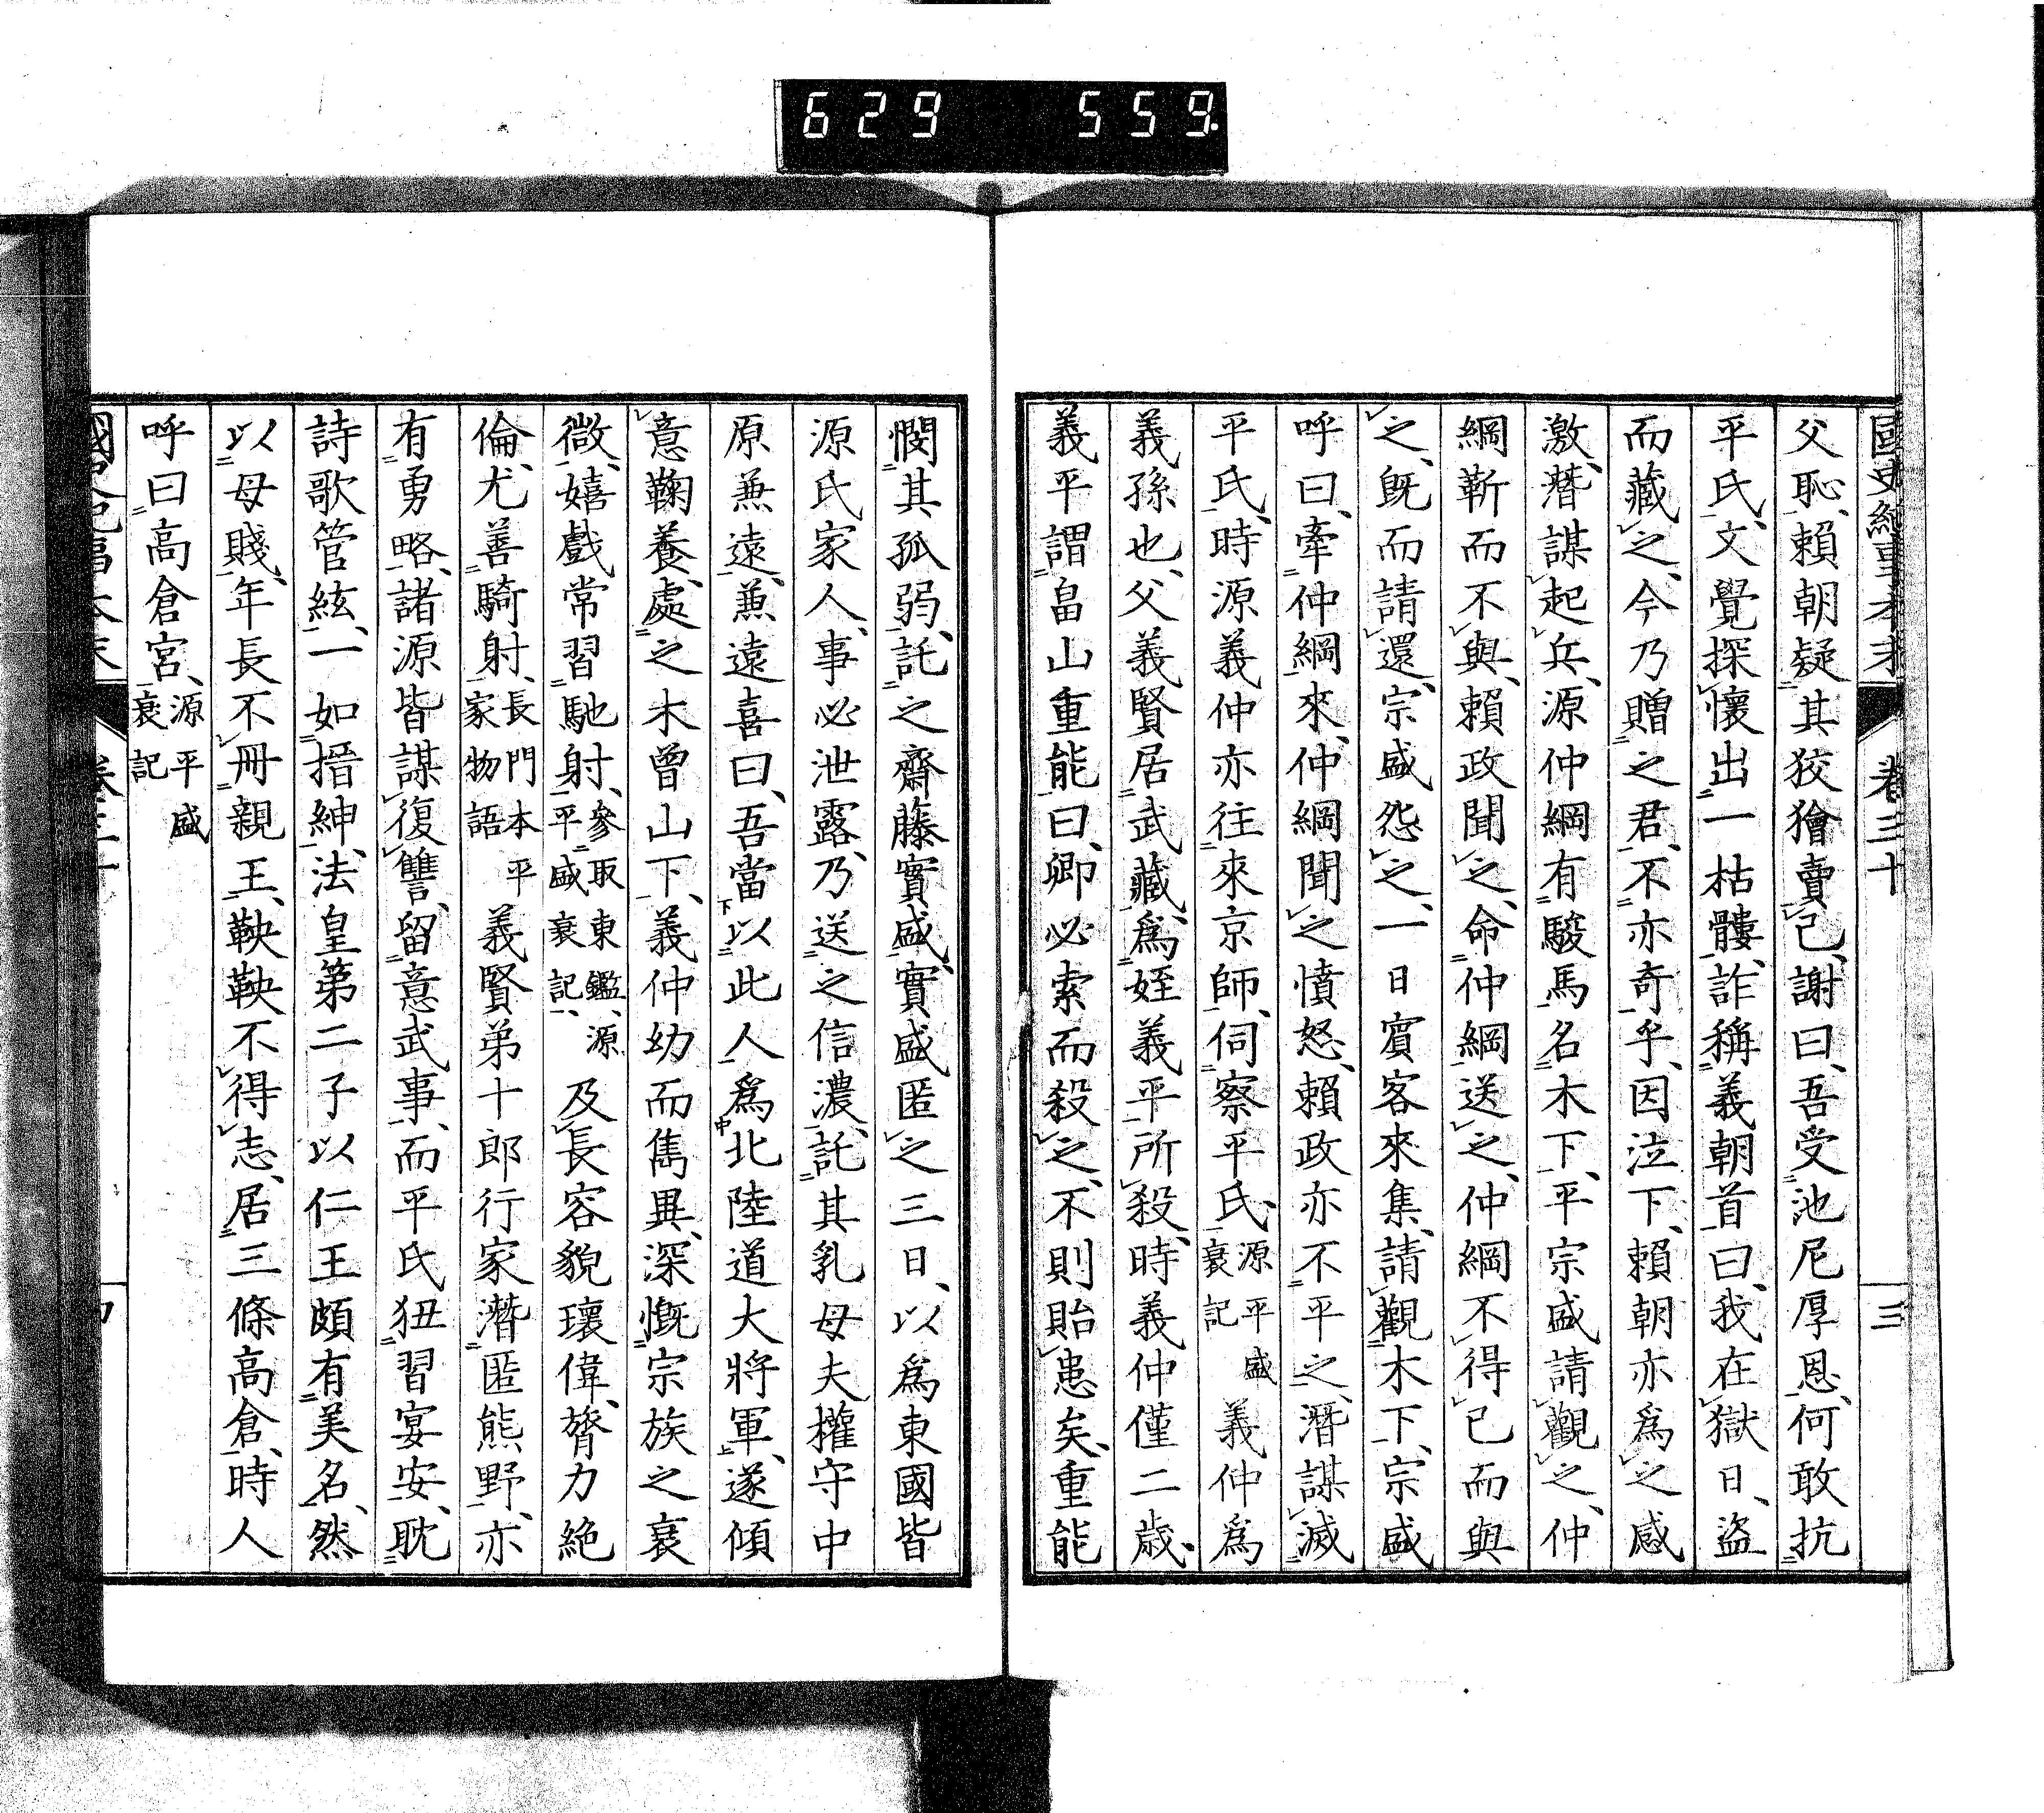 629 559
卷三十
三
父恥、賴朝疑其狡獪賣己、謝曰、吾受池尼厚恩、何敢抗
平氏、文覺探懷出一枯髏、詐稱義朝首曰、我在獄日、盜
而藏之、今乃贈之君、不亦奇乎、因泣下、賴朝亦爲之感
激、潛謀起兵、源仲綱有駿馬名木下、平宗盛請觀之、仲
綱靳而不與、賴政聞之、命仲綱送之、仲綱不得已而與
之、既而請還、宗盛怨之、一日賓客來集、請觀木下、宗盛
呼曰、牽仲綱來、仲綱聞之憤怒、賴政亦不平之、潛謀滅
平氏、時源義仲亦往來京師、伺察平氏、源平盛衰記義仲爲
義孫也、父義賢居武藏、爲姪義平所殺、時義仲僅二歲、
義平謂畠山重能曰、卿必索而殺之、不則貽患矣、重能
憫其孤弱、託之齋藤實盛、實盛匿之三日、以爲東國皆
源氏家人、事必泄露、乃送之信濃、託其乳母夫權守中
原兼遠、兼遠喜曰、吾當以此人爲北陸道大將軍、遂傾
意鞠養、處之木曾山下、義仲幼而雋異、深慨宗族之衰
微、嬉戲常習馳射、參取東鑑、源平盛衰記、及長容貌瓌偉、膂力絕
倫、尤善騎射、長門本平家物語義賢弟十郎行家潛匿熊野、亦
有勇略、諸源皆謀復讐、留意武事、而平氏狃習宴安、耽
詩歌管絃、一如搢紳、法皇第二子以仁王頗有美名、然
以母賤、年長不冊親王、鞅鞅不得志、居三條高倉、時人
呼曰高倉宮、源平盛衰記